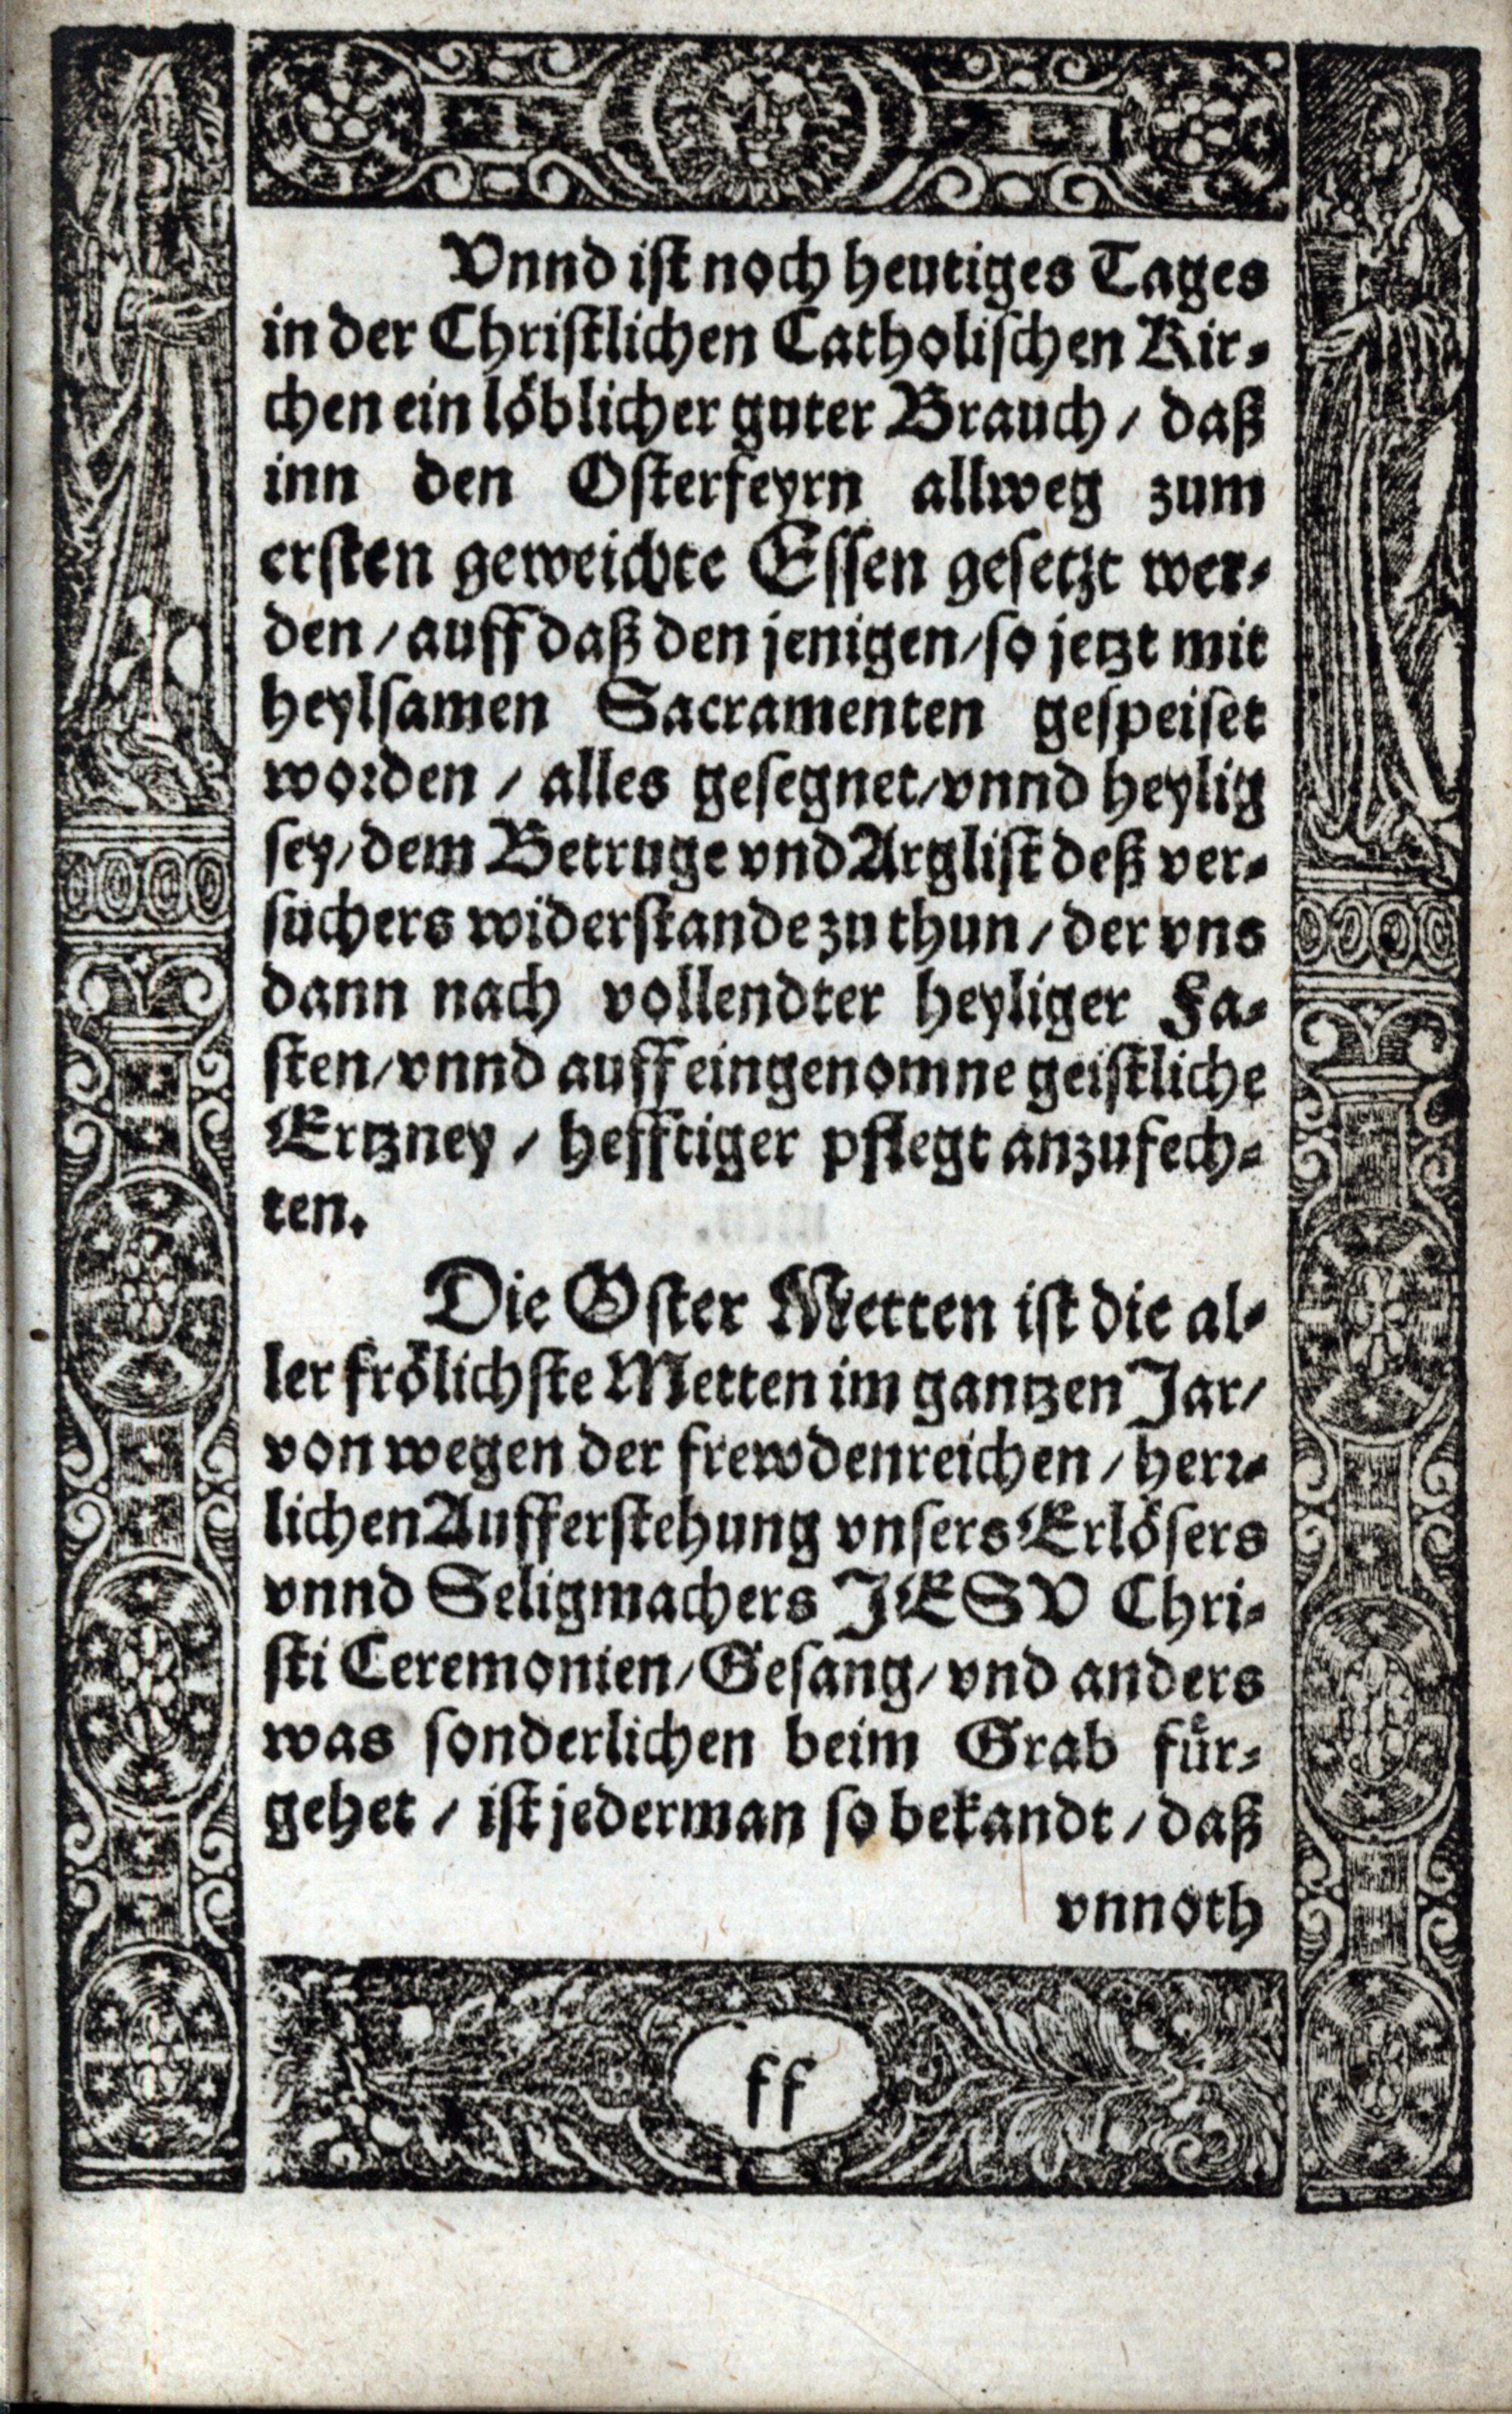 Vnnd ist noch heutiges Tages
in der Christlichen Catholischen Kir-
chen ein löblicher guter Brauch / daß
inn den Osterfeyrn allweg zum
ersten geweichte Essen gesetzt wer-
den / auff daß den jenigen / so jetzt mit
heylsamen Sacramenten gespeiset
worden / alles gesegnet / vnnd heylig
sey / dem Betruge vnd Arglist deß ver-
suchers widerstande zu thun / der vns
dann nach vollendter heyliger Fa-
sten / vnnd auff eingenomne geistliche
Ertzney / hefftiger pflegt anzufech-
ten.
Die Oster Metten ist die al-
ler frölichste Metten im gantzen Jar /
von wegen der frewdenreichen / herr-
lichen Aufferstehung vnsers Erlösers
vnnd Seligmachers JESV Chri-
sti Ceremonien / Gesang / vnd anders
was sonderlichen beim Grab für-
gehet / ist jederman so bekandt / daß
vnnoth
ff